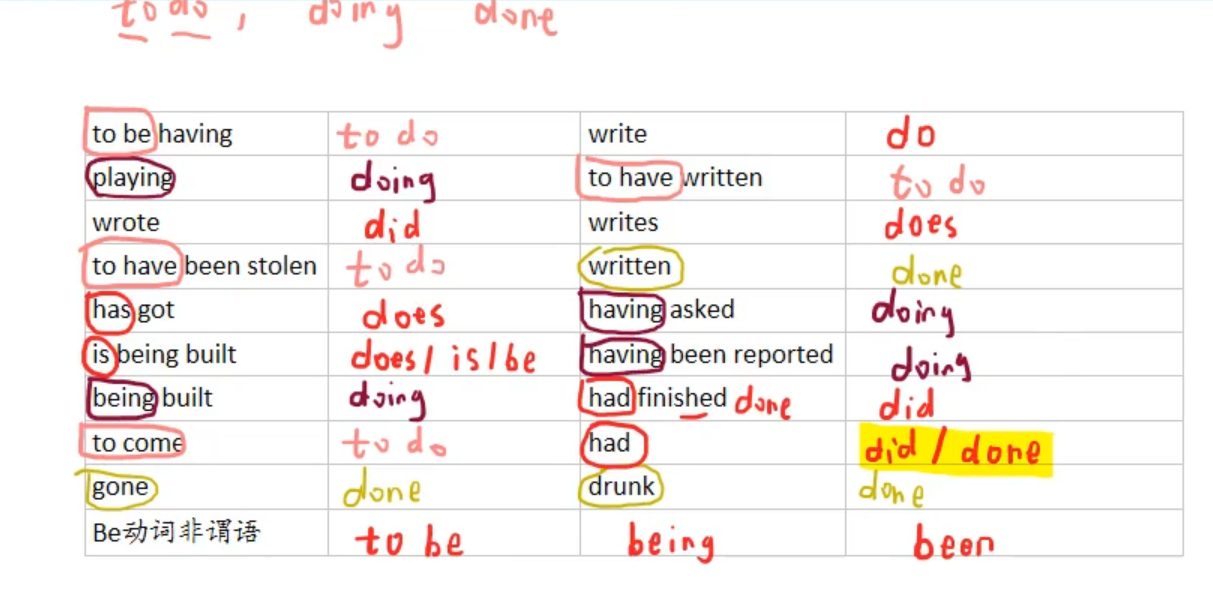 to do, doing done
to be having to do write do
playing doing to have written to do
wrote did writes does
to have been stolen to do written done
has got does having asked doing
is being built does / is / be having been reported doing
being built doing had finished done did
to come to do had did / done
gone done drunk done
Be动词非谓语 to be being been